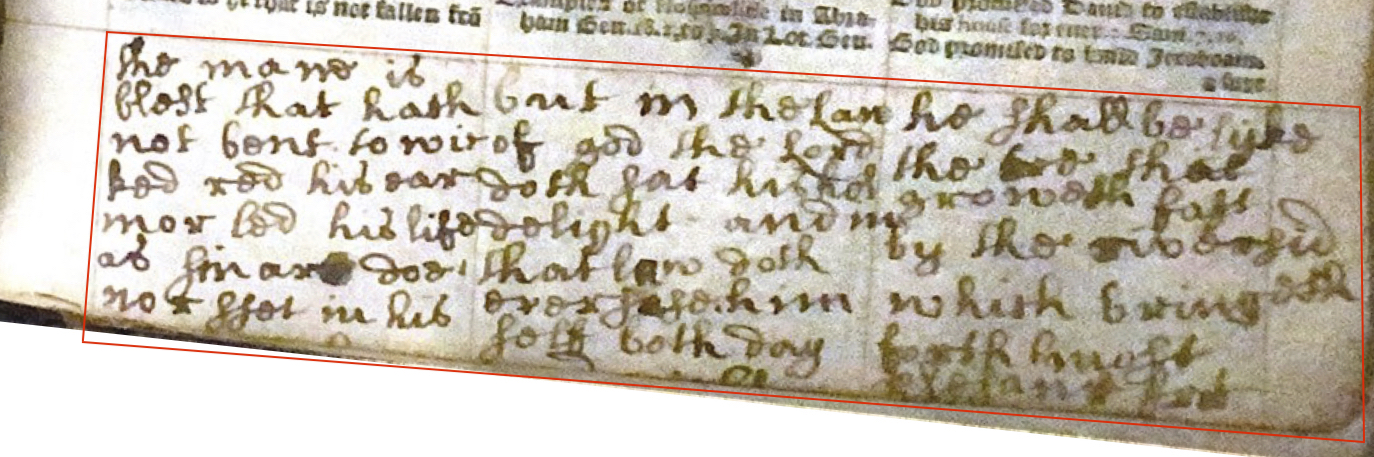 he that is not fallen frō
ham Gen.18.2,to 9. In Lot. Gen.
God promised Dauid to establishe
his house for euer. 2 Sam. 7.10.
God promised Jeroboam
a sure
the mane is
blest that hath
not bent to wic
ked red his ear
mor led his life
as sinars doe
nor sset in his
but in the law
of god the lord
doth sat his hol
delight and in
that law doth
him
self both day
he shall be like
the tre that
groweth fast
by the riversid
which bringeth
forth
plesant frut